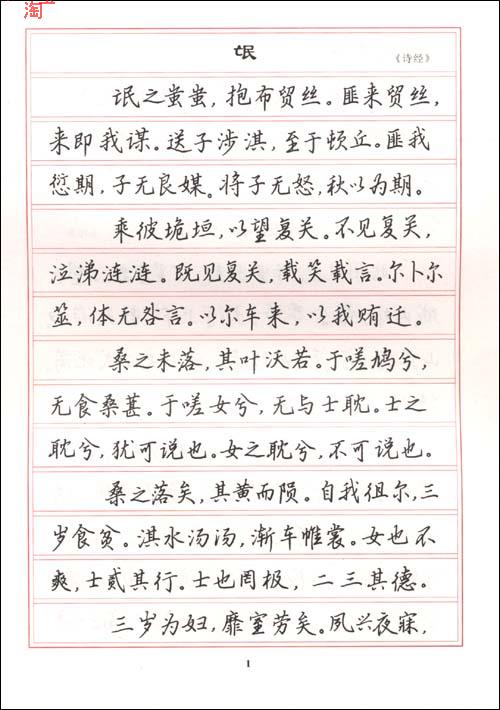 淘
氓
《诗经》
氓之蚩蚩，抱布贸丝。匪来贸丝，
来即我谋。送子涉淇，至于顿丘。匪我
愆期，子无良媒。将子无怒，秋以为期。
乘彼垝垣，以望复关。不见复关，
泣涕涟涟。既见复关，载笑载言。尔卜尔
筮，体无咎言。以尔车来，以我贿迁。
桑之未落，其叶沃若。于嗟鸠兮，
无食桑葚。于嗟女兮，无与士耽。士之
耽兮，犹可说也。女之耽兮，不可说也。
桑之落矣，其黄而陨。自我徂尔，三
岁食贫。淇水汤汤，渐车帷裳。女也不
爽，士贰其行。士也罔极，二三其德。
三岁为妇，靡室劳矣。夙兴夜寐，
1